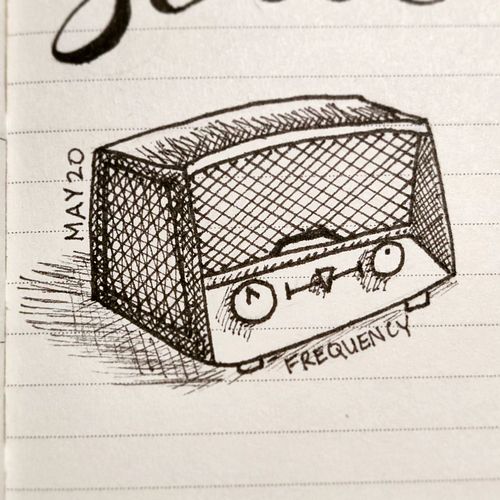 MAY 20
FREQUENCY